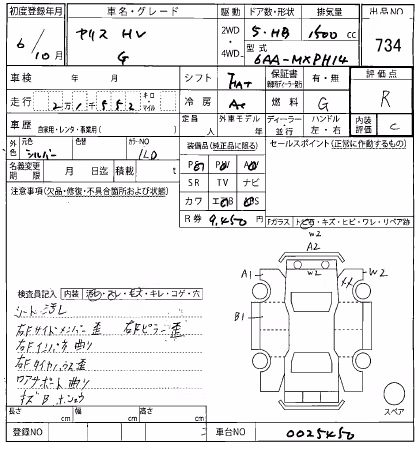 初度登録年月 車名・グレード 駆動 ドア数・形状 排気量 出品NO
6/10月 ヤリス HV G 2WD 4WD 5・HB 1500 cc 734
型式 6AA-MXPH14
車検 年 月 シフト FAT 保証書 有・無 評価点
走行 2万1千552 キロ・マイル 冷房 AC 燃料 G R
車歴 自家用・レンタ・事業用( ) 定員 人 外車モデル 年 ディーラー 並行 ハンドル 左・右 内装評価 C
外色 元色 シルバー 色替 カラーNO 1L0 装備品(純正品に限る) セールスポイント(正常に作動するもの)
名義変更期限 月 日迄 積載 t PS PW AW
注意事項(欠品・修復・不具合箇所および状態) SR TV ナビ
カワ エアB ABS
R券 9,450 円 Fガラス (トビ石・キズ・ヒビ・ワレ・リペア跡)
W2
A2
A1 W2 W2
B1 XX
検査員記入 内装 (汚れ・スレ・毛ズ・キレ・コゲ・穴)
シート 汚れ
右Fサイドメンバー 歪 右Fピラー 歪
右Fインパネ 曲り
右Fタイヤハウス 歪
ロアサポート 曲り
キズ B
スペア
長さ cm 幅 cm 高さ cm
登録NO 車台NO 0025450